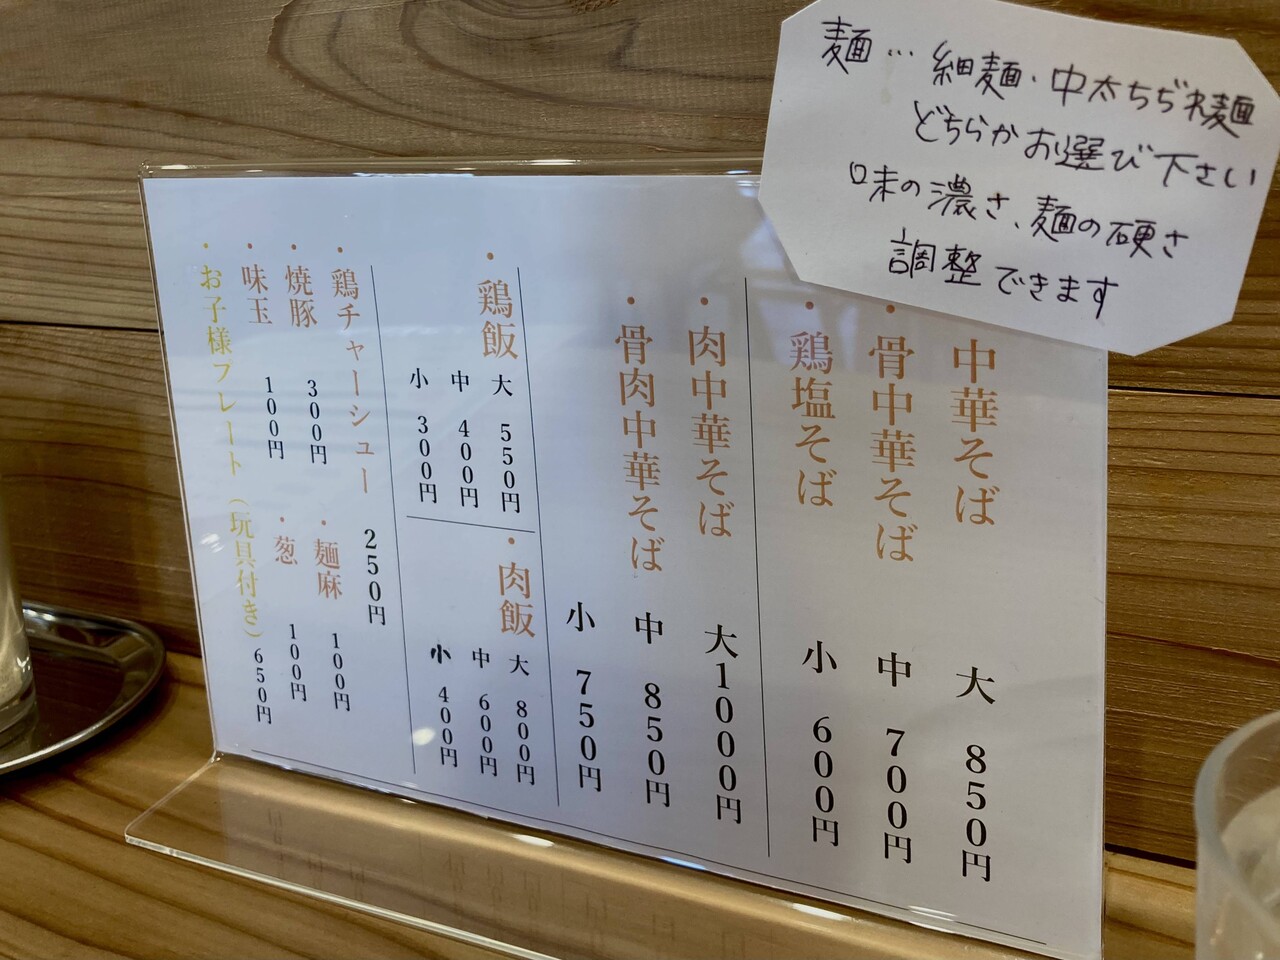 麺…細麺・中太ちぢれ麺
どちらかお選び下さい
味の濃さ、麺の硬さ
調整できます
中華そば
・骨中華そば
・鶏塩そば
大 850円
中 700円
小 600円
・肉中華そば
・骨肉中華そば
大1000円
中 850円
小 750円
・鶏飯
大 550円
中 400円
小 300円
・肉飯
大 800円
中 600円
小 400円
・鶏チャーシュー 250円
・焼豚 300円
・麺麻 100円
・味玉 100円
・葱 100円
・お子様プレート（玩具付き）650円